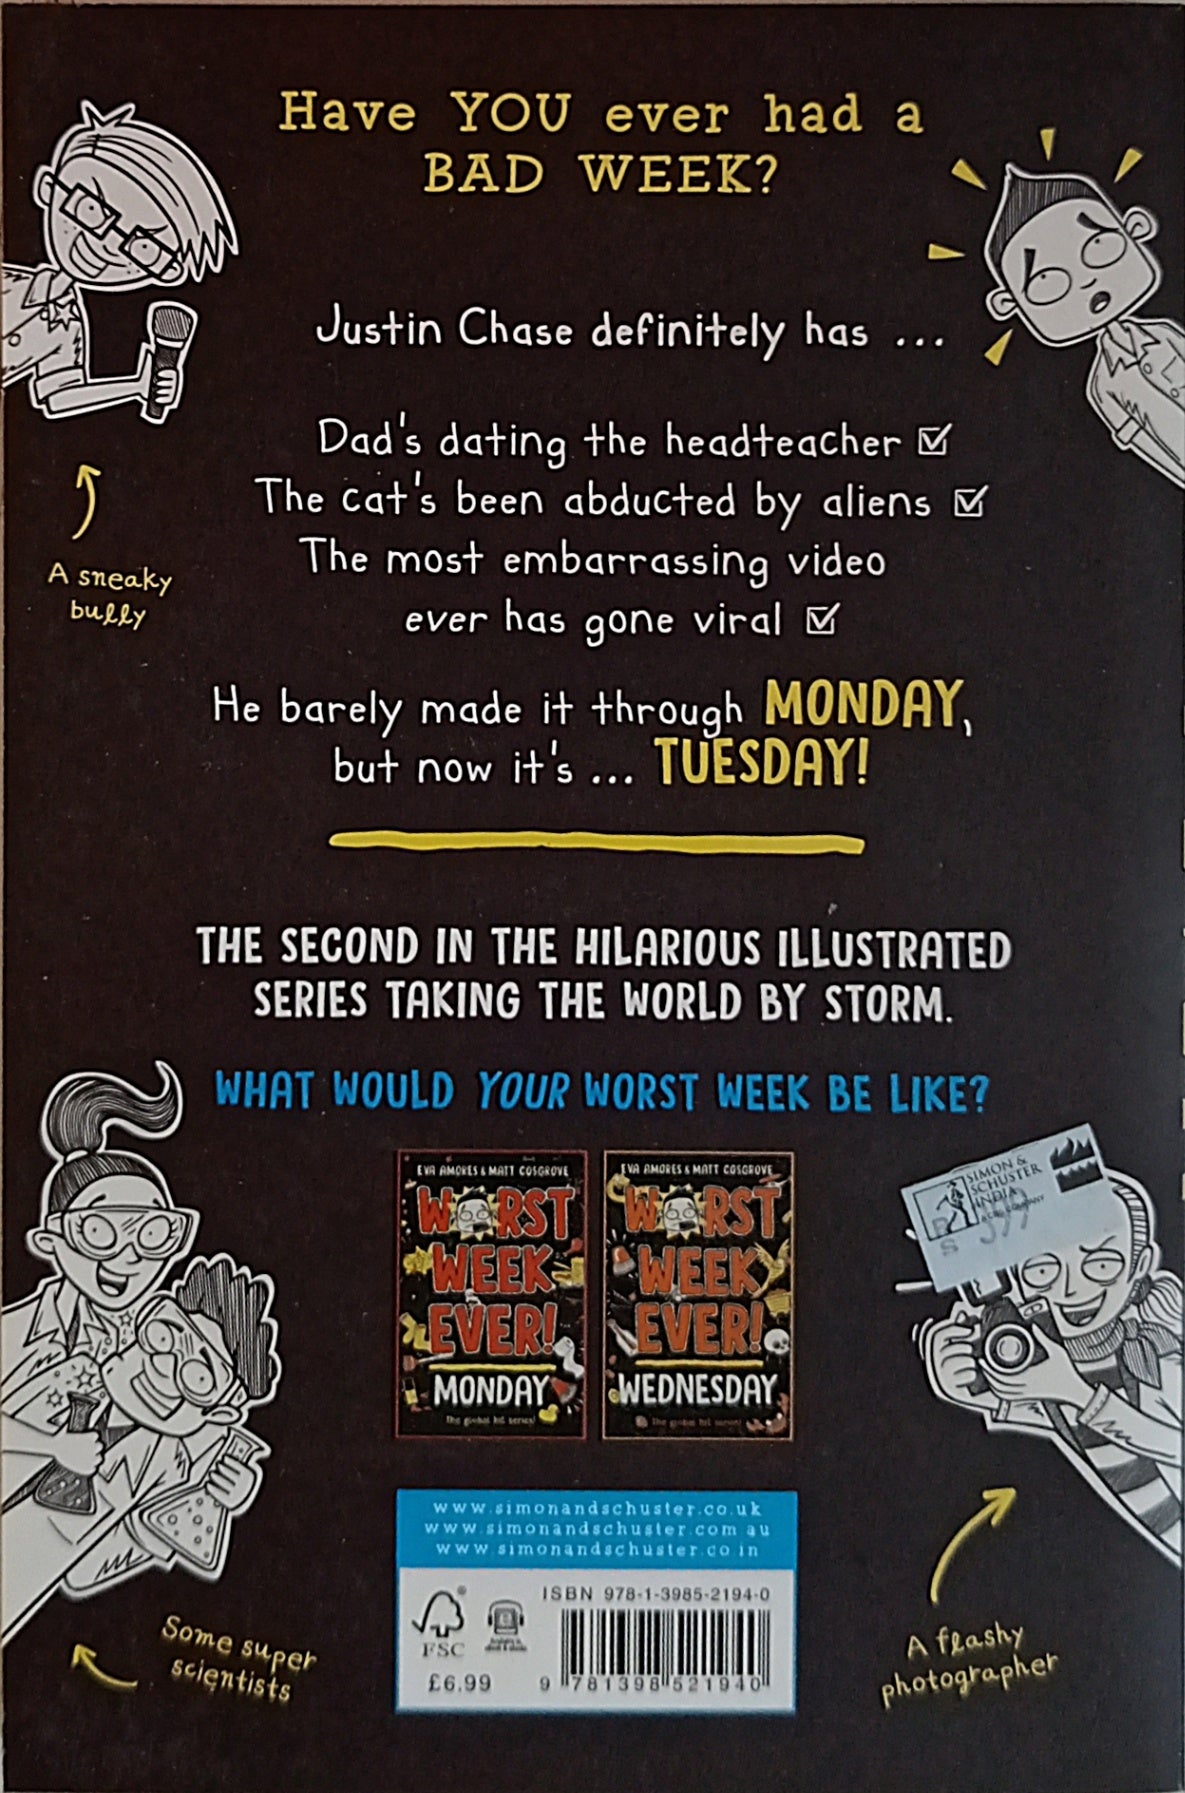 Have YOU ever had a
BAD WEEK?
Justin Chase definitely has ...
Dad's dating the headteacher
The cat's been abducted by aliens
The most embarrassing video
ever has gone viral
A sneaky
bully
He barely made it through MONDAY,
but now it's ... TUESDAY!
THE SECOND IN THE HILARIOUS ILLUSTRATED
SERIES TAKING THE WORLD BY STORM.
WHAT WOULD YOUR WORST WEEK BE LIKE?
EVA AMORES & MATT COSGROVE
WORST
WEEK
EVER!
MONDAY
The global hit series!
EVA AMORES & MATT COSGROVE
WORST
WEEK
EVER!
WEDNESDAY
The global hit series!
SIMON &
SCHUSTER
INDIA
A CBS COMPANY
RS 399
www.simonandschuster.co.uk
www.simonandschuster.com.au
www.simonandschuster.co.in
ISBN 978-1-3985-2194-0
FSC
£6.99
9 781398 521940
Some super
scientists
A flashy
photographer